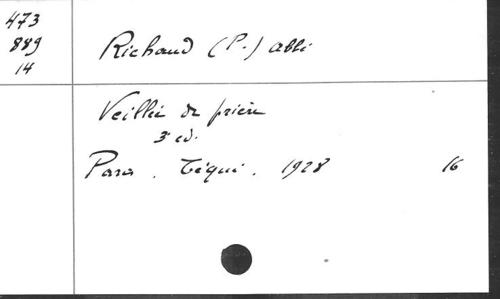 473
889
14
Richaud (P.) Abbé
Veillée de prière
3e ed.
Paris. Téqui. 1928 16